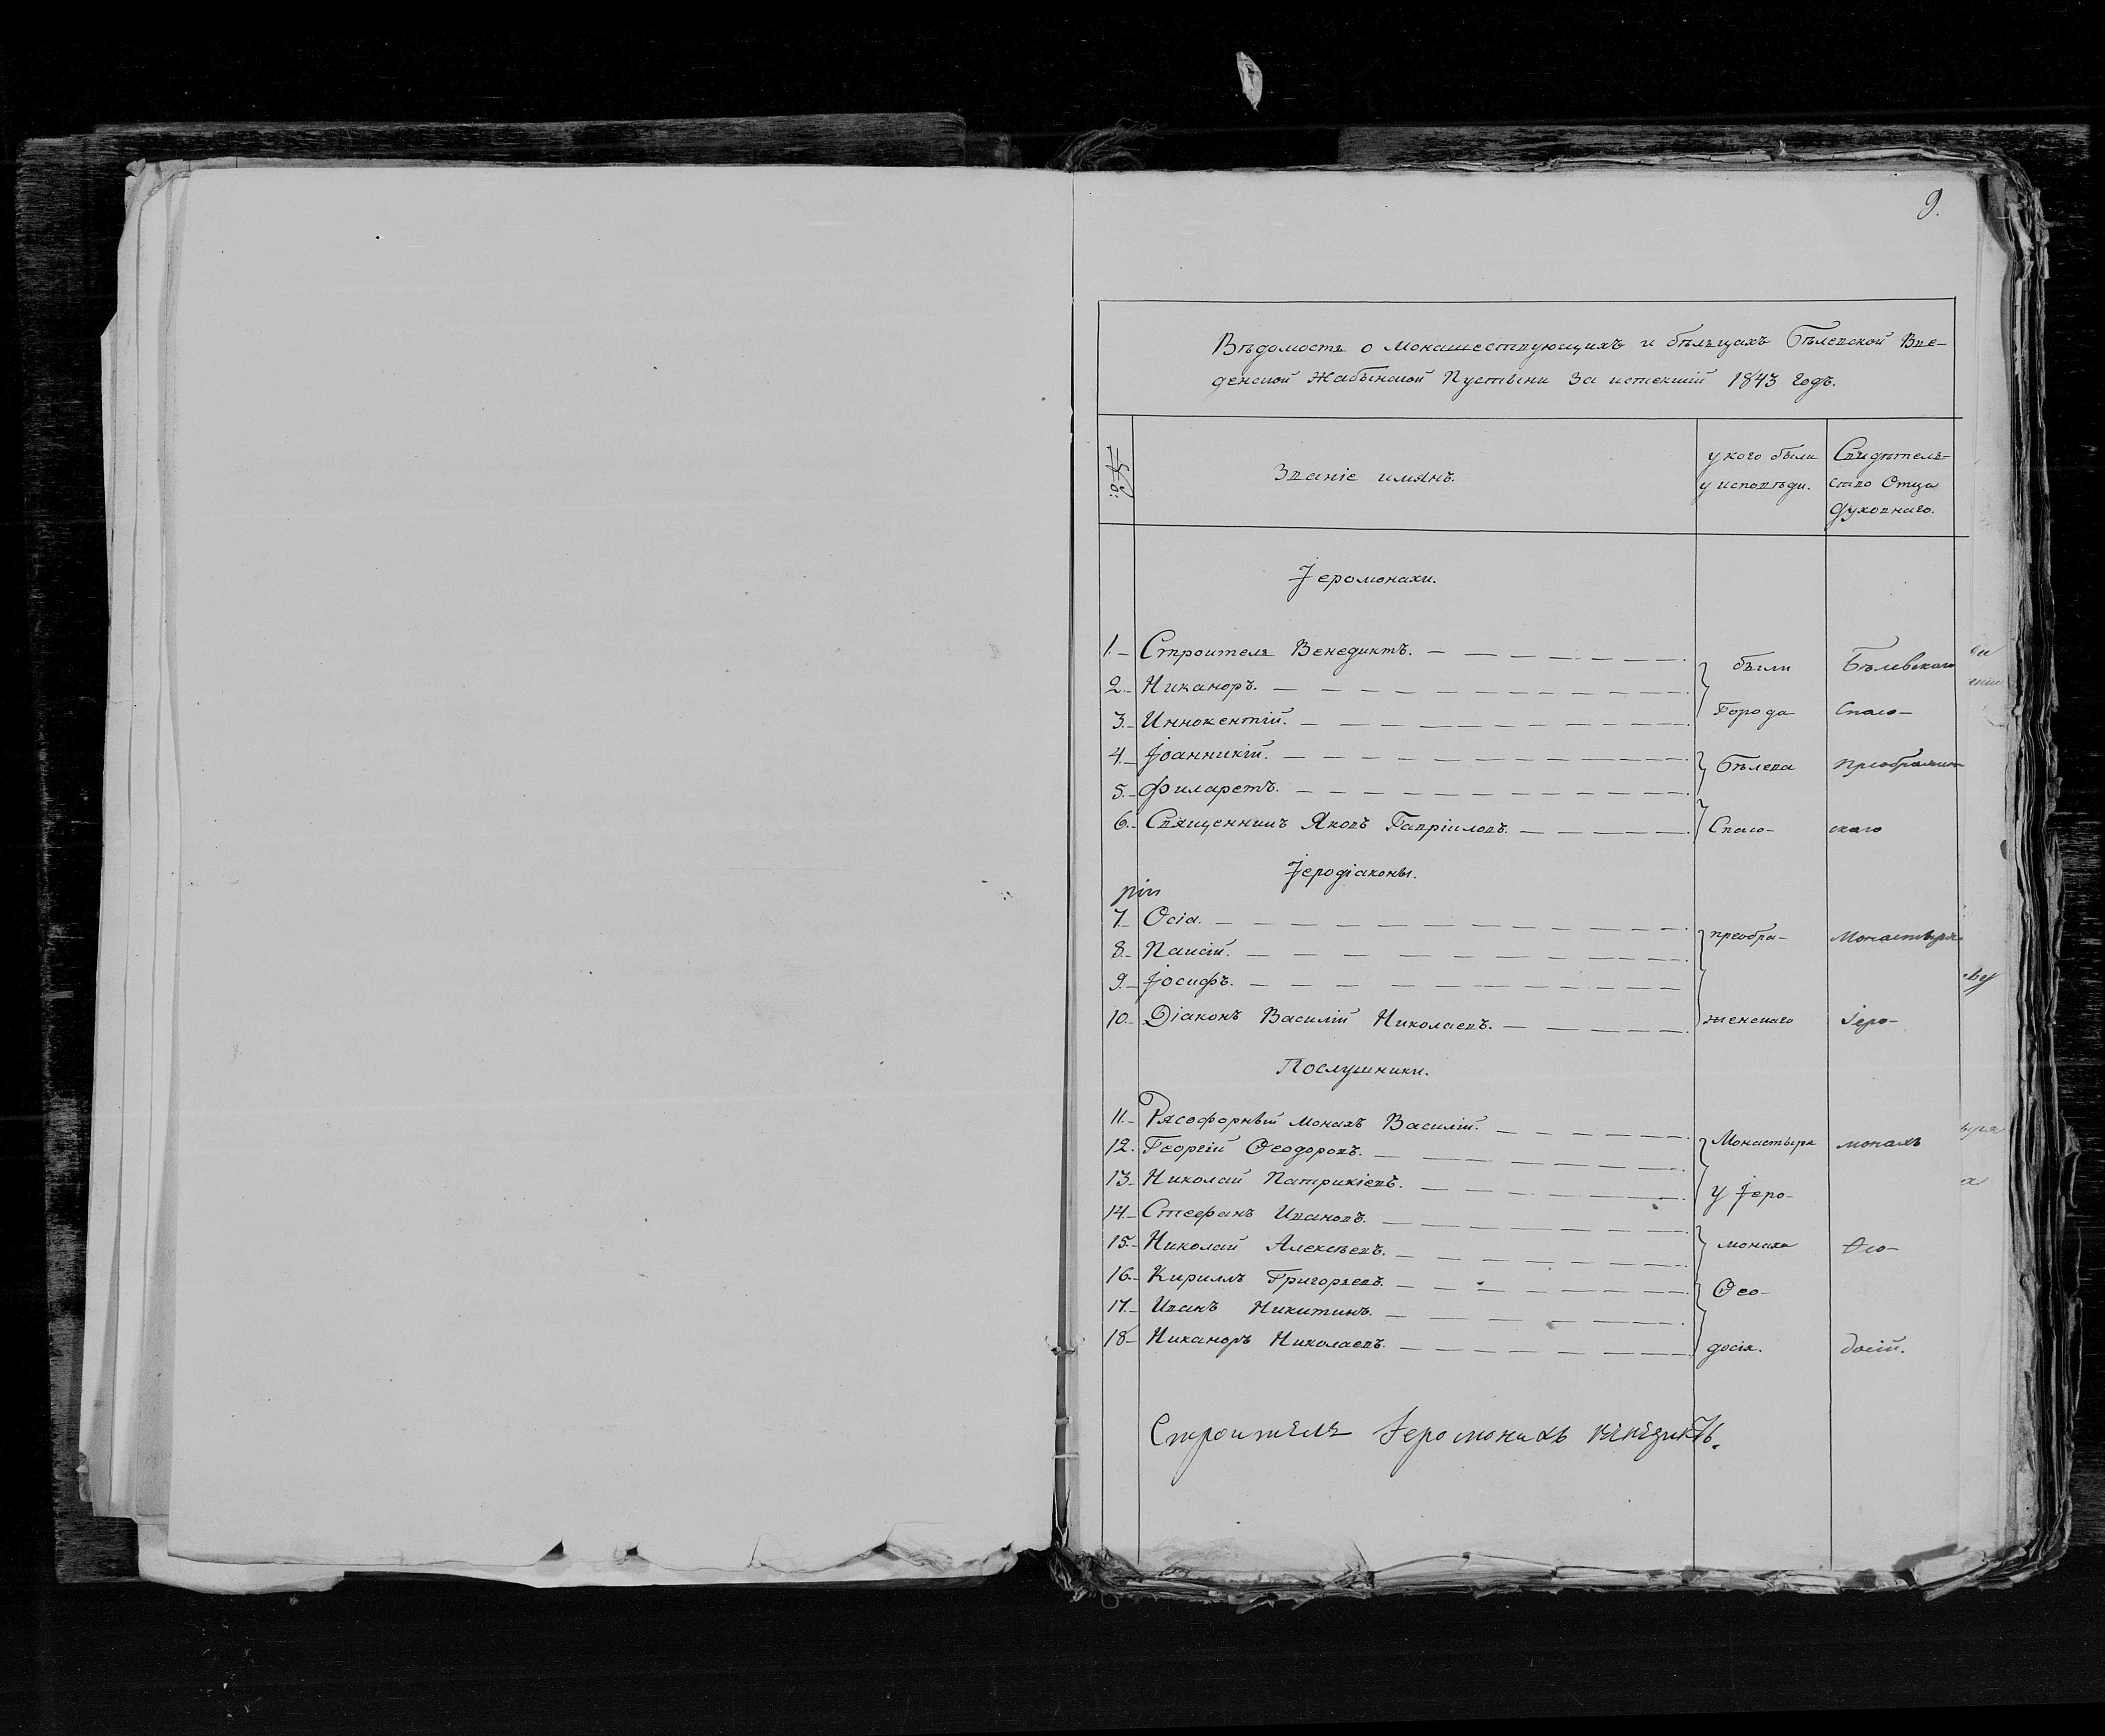 9.
Вѣдомость о монашествующихъ и бѣльцахъ Бѣлевской Вве-
денской Жабынской Пустыни за истекшій 1843 годъ.
№
Званіе имянъ.
у кого были
у исповѣди.
Свидѣтель-
ство Отца
Духовнаго.
Іеромонахи.
1. Строитель Венедиктъ. были Бѣлевскаго
2. Никаноръ.
3. Иннокентій. Города Спасо-
4. Іоанникій.
5. Филаретъ. Бѣлева Преображен-
6. Священникъ Яковъ Гавріиловъ. Спасо- скаго
Іеродіаконы.
7. Осіа.
8. Паисій. преобра- Монастыря
9. Іосифъ.
10. Діаконъ Василій Николаевъ. женскаго Іеро-
Послушники.
11. Рясофорный монахъ Василій.
12. Георгій Ѳеодоровъ. Монастыря монахъ
13. Николай Патрикіевъ. у Іеро-
14. Стефанъ Ивановъ.
15. Николай Алексѣевъ. монаха Ѳео-
16. Кириллъ Григорьевъ. Ѳео-
17. Иванъ Никитинъ.
18. Никаноръ Николаевъ. досія. досій.
Строитель Іеромонахъ Венедиктъ.